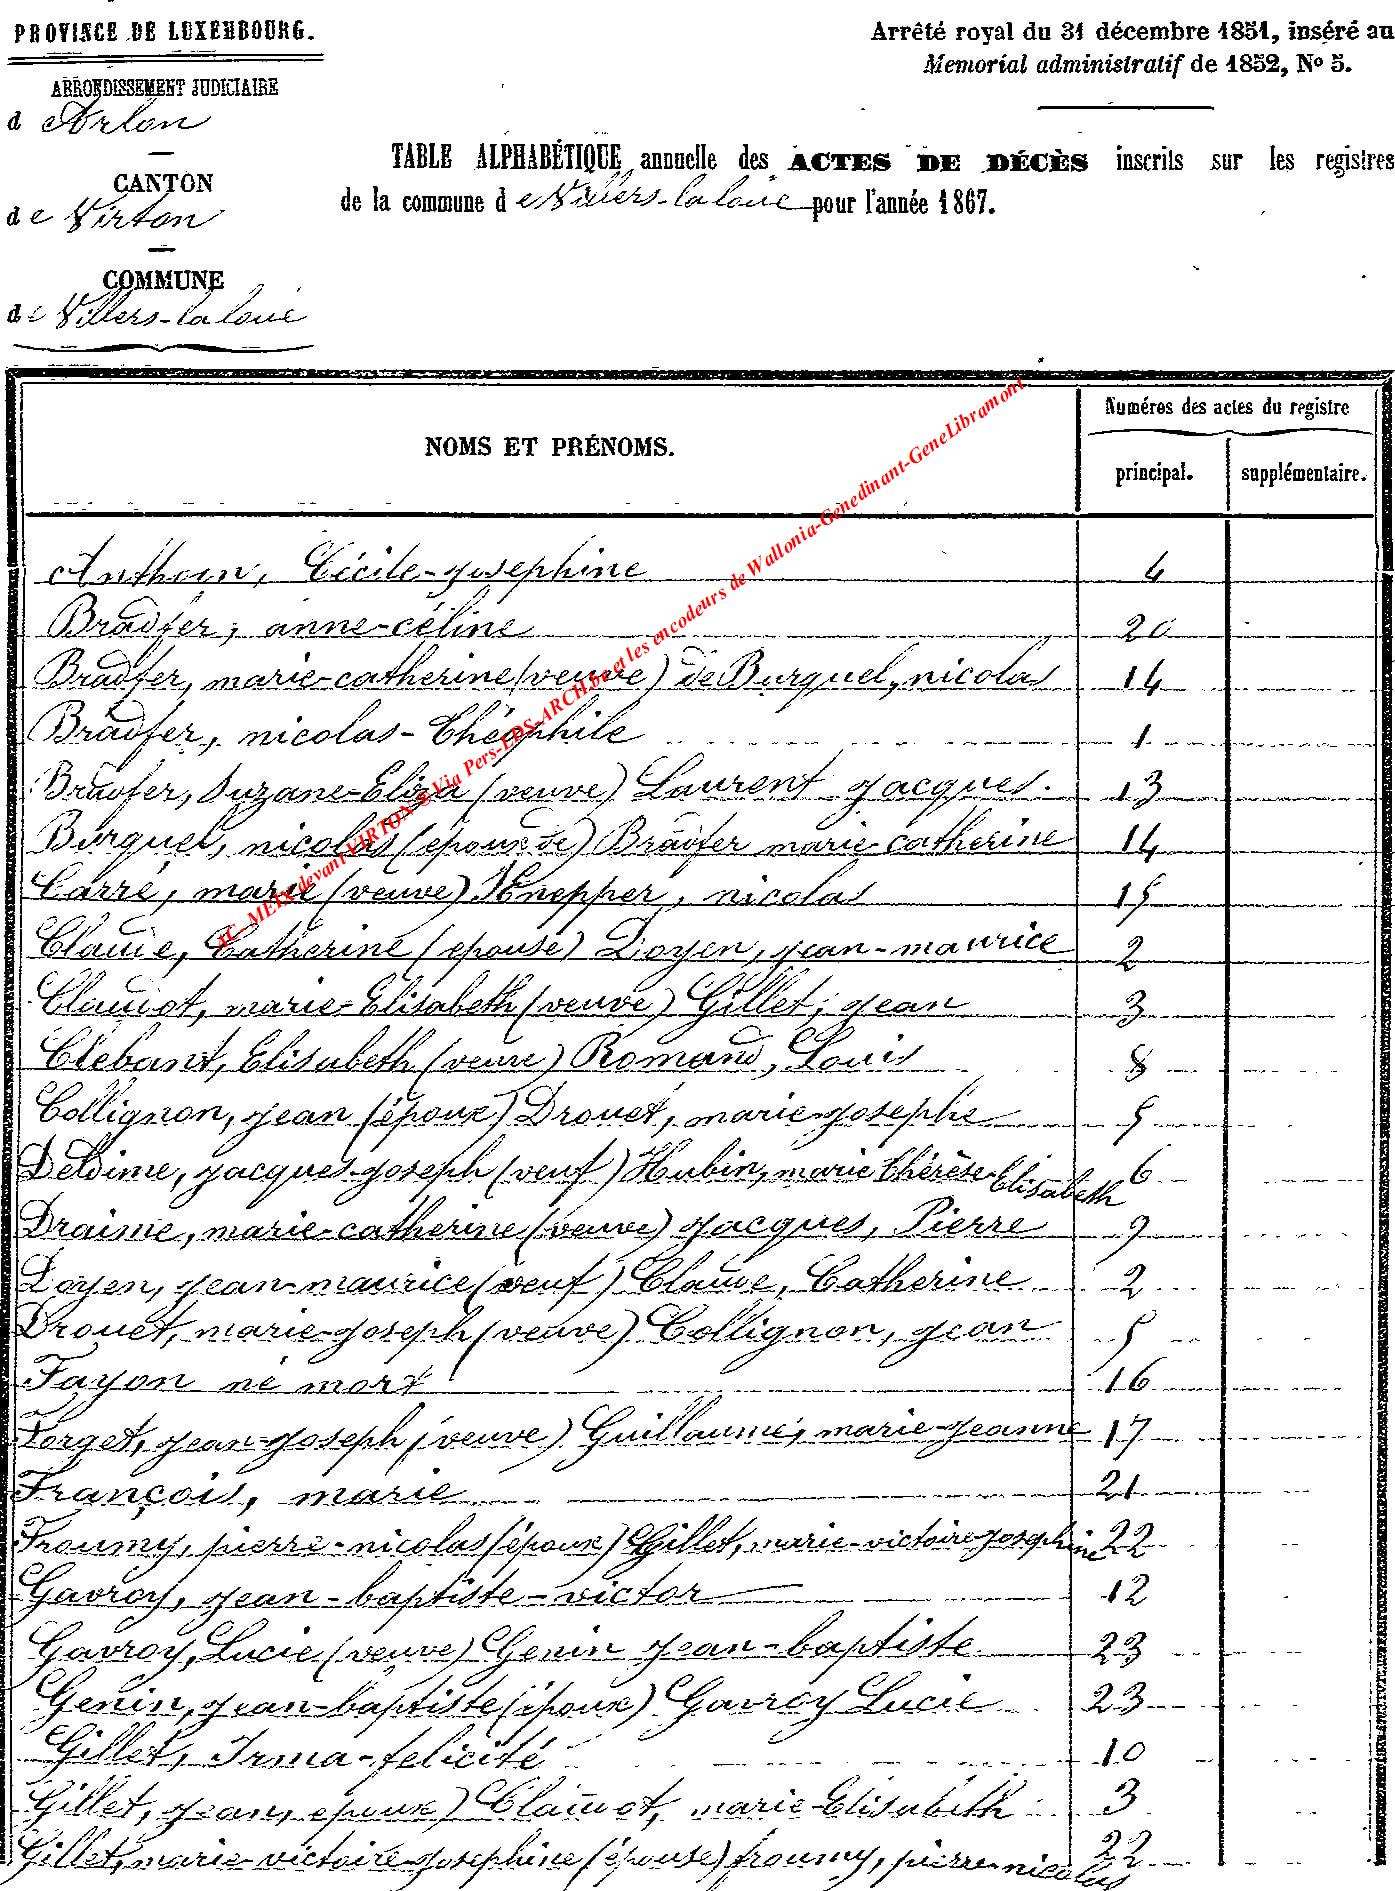 PROVINCE DE LUXEMBOURG.
ARRONDISSEMENT JUDICIAIRE
d'Arlon
CANTON
de Virton
COMMUNE
de Villers-la loue
Arrêté royal du 31 décembre 1851, inséré au
Memorial administratif de 1852, No 5.
TABLE ALPHABÉTIQUE annuelle des ACTES DE DÉCÈS inscrits sur les registres
de la commune de Villers-la loue pour l'année 1867.
NOMS ET PRÉNOMS.
Numéros des actes du registre
principal. supplémentaire.
Anthoin, Cécile-Josephine 4
Bradfer, anne-céline 20
Bradfer, marie-catherine (veuve) de Burquel, nicolas 14
Bradfer, nicolas-Théophile 1
Bradfer, Suzane-Eliza (veuve) Laurent Jacques. 13
Burquel, nicolas (epoux de) Bradfer marie catherine 14
Carré, marie (veuve) Knepper, nicolas 15
Claude, Catherine (epouse) Doyen, Jean-maurice 2
Claudot, marie-Elisabeth (veuve) Gillet, Jean 3
Clebant, Elisabeth (veuve) Romand, Louis 8
Collignon, Jean (époux) Drouet, marie-Josephe 5
Deldime, Jacques-Joseph (veuf) Hubin, marie Thérèse-Elisabeth 6
Draime, marie-catherine (veuve) Jacques, Pierre 9
Doyen, Jean-maurice (veuf) Claude, Catherine 2
Drouet, marie-Joseph (veuve) Collignon, Jean 5
Fayon né mort 16
Forget, Jean-Joseph (veuve) Guillaume, marie-Jeanne 17
François, marie 21
Froumy, pierre-nicolas (époux) Gillet, marie-victoire Josephine 22
Gavroy, Jean-baptiste-victor 12
Gavroy, Lucie (veuve) Genin Jean-baptiste 23
Genin, Jean-baptiste (époux) Gavroy Lucie 23
Gillet, Irma-felicité 10
Gillet, Jean, époux) Claudot, marie-Elisabeth 3
Gillet, marie-victoire-Josephine (épouse) froumy, pierre nicolas 22
devant VIRTON Via Pers-EDS-ARCH.be et les encodeurs de Wallonia-Genedinant-GeneLibramont